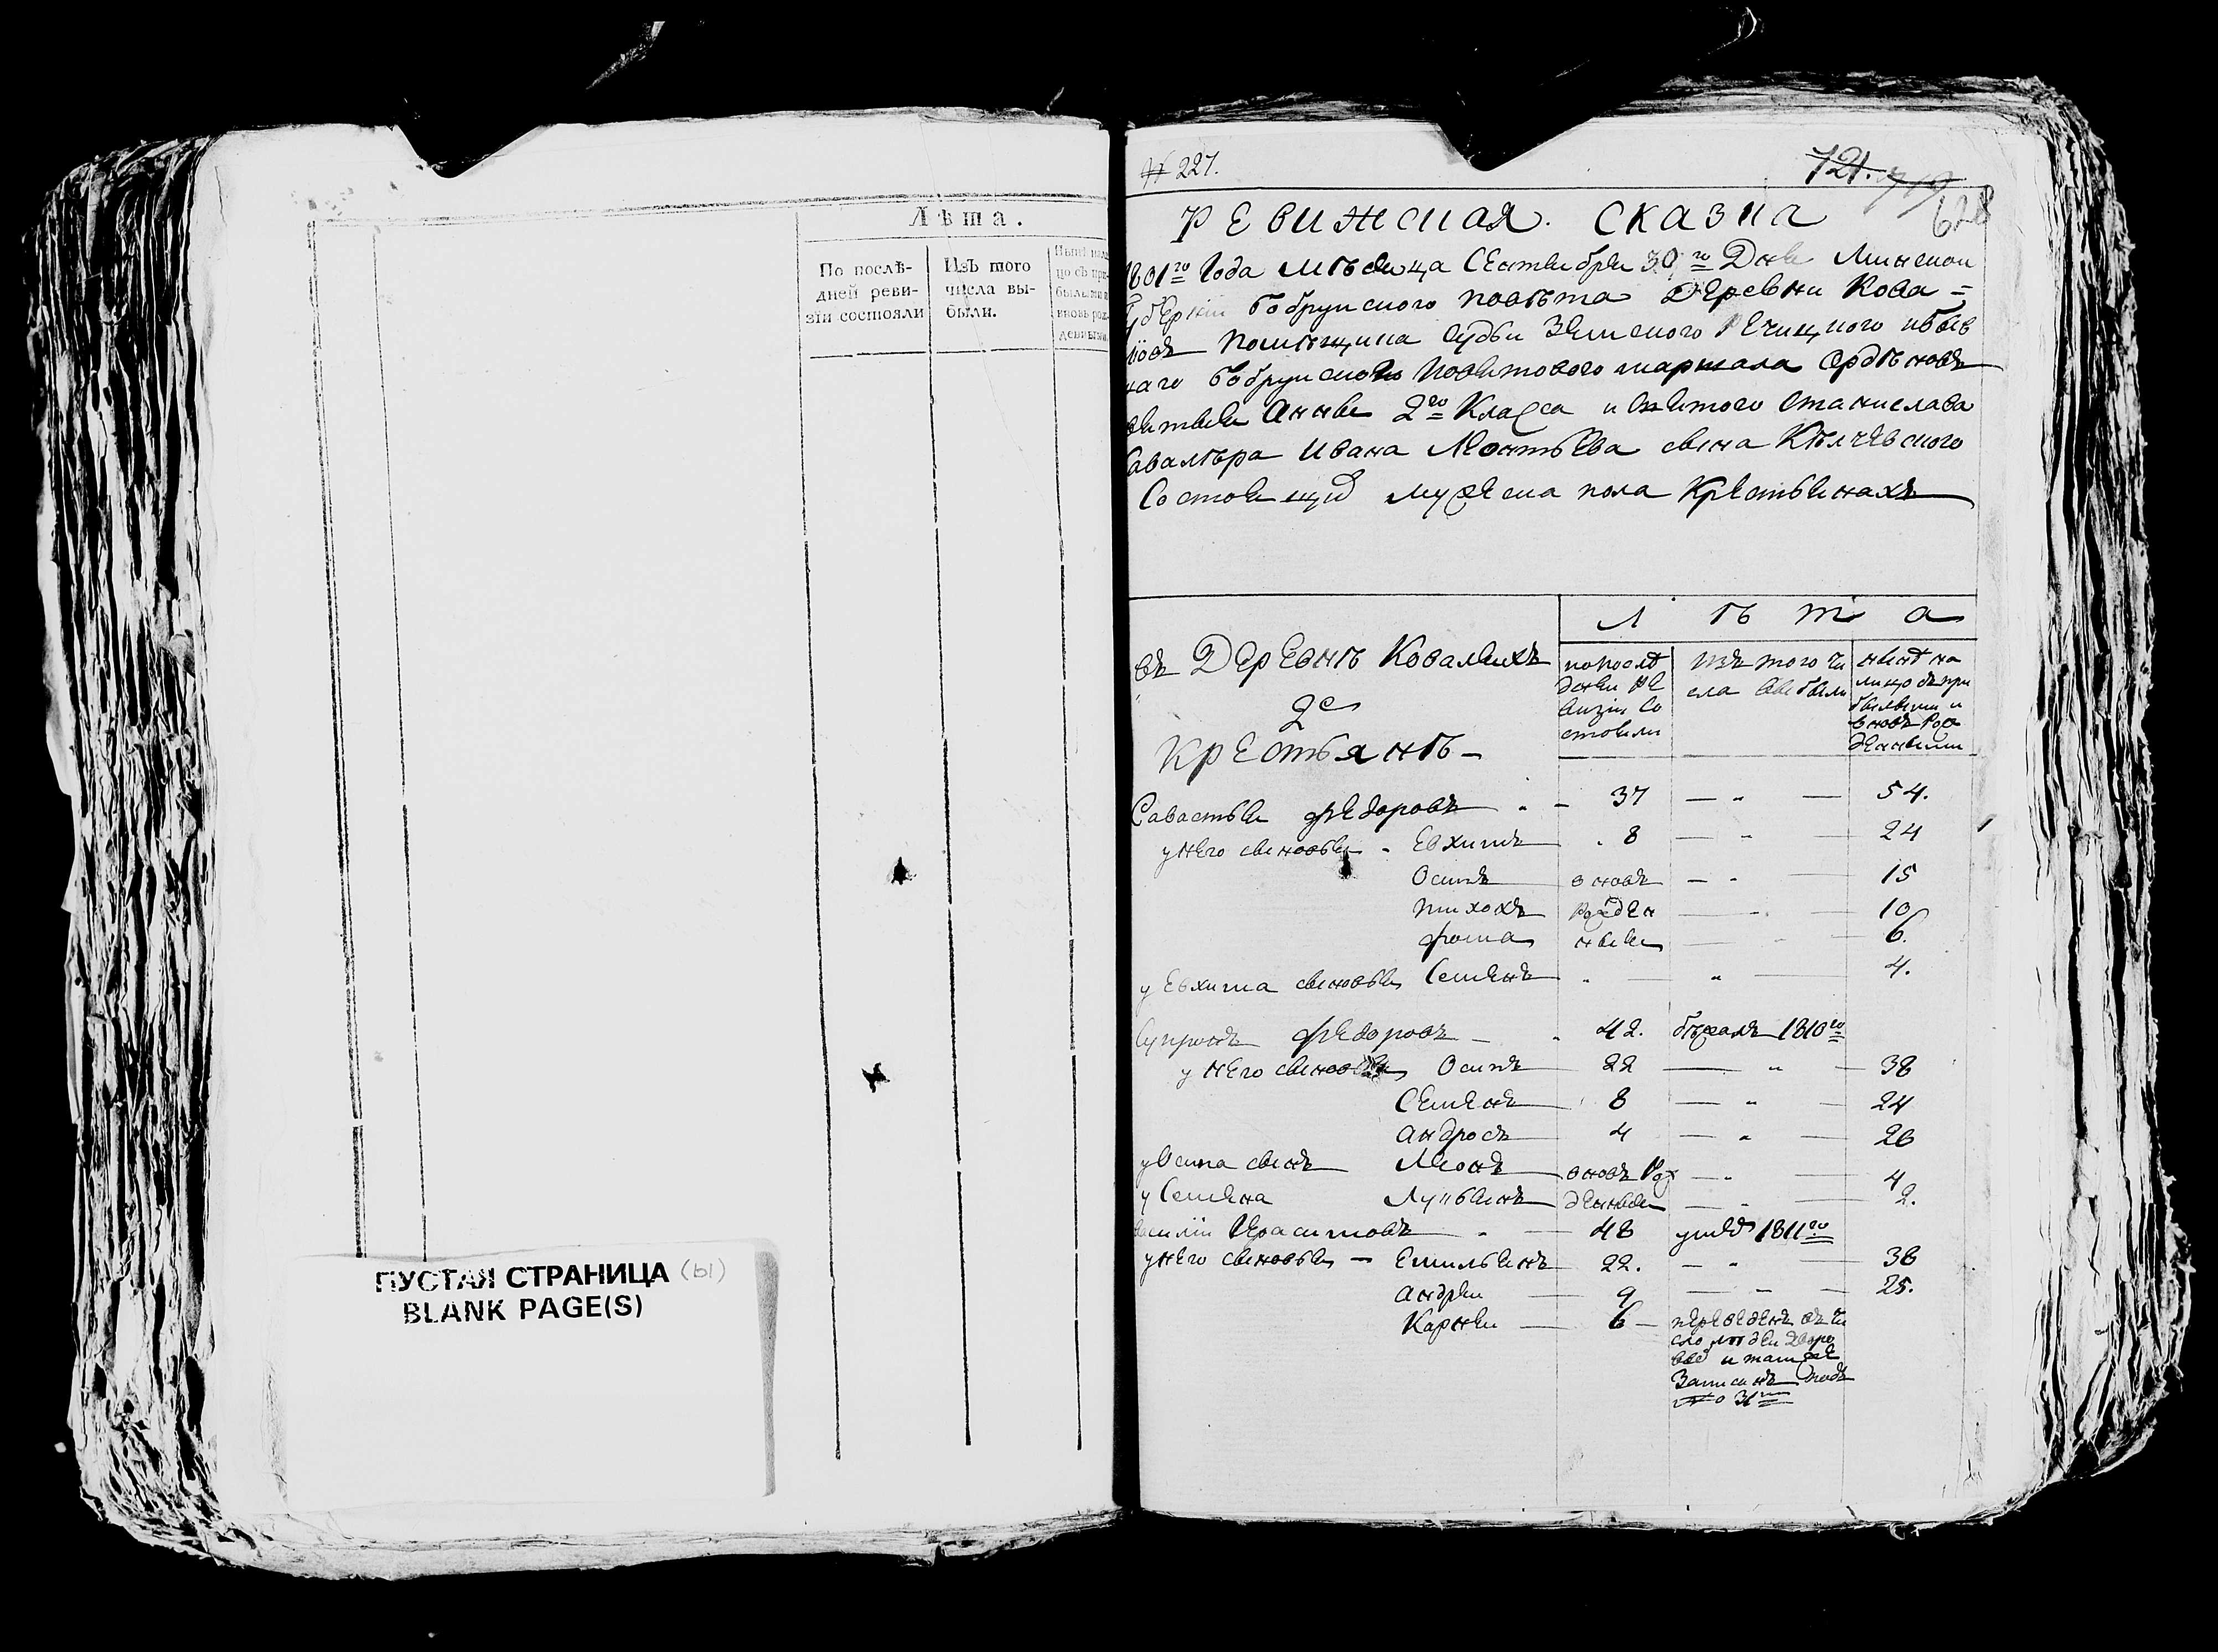 Лѣта.
По послѣ-
дней реви-
зіи состояли
Изъ того
числа вы-
были.
ПУСТАЯ СТРАНИЦА (ы)
BLANK PAGE(S)
№ 227.
721. 719
628
Ревижская. сказка
Года мѣсяца Сентября 30го Дня Минской
Бобруйского повѣта Деревни Кова=
помѣщика судьи Земского Речицкого
Бобруйского Повѣтового маршала Ордѣновъ
Анны 2го Класса и святого Станислава
Ивана Леонтьева сына Кѣлчевского
Состоящих мужеска пола Крестьянахъ
Лѣта
въ Деревнѣ Коваляхъ
2е
Крестьянѣ-
попослѣ
дней ре
визіи Со
стояли
изъ того чи
сла выбыли
нынѣ на
лицо съ при
былыми и
вновь рож
денными
Савастьян Федоровъ - 37 — „ — 54.
у него сыновья - Евхимъ . 8 — „ — 24
Осипъ вновъ — „ — 15
Тихохъ рожден — 10
Фома ныя — 6.
у Евхима сыновья Семенъ . — „ — 4.
Супронъ Федоровъ - 42. бѣжалъ 1810го
у него сыновья Осипъ 22 — „ — 38
Семенъ 8 — „ — 24
Андросъ 4 — „ — 20
у Осипа сынъ Леонъ вновъ рож — „ — 4
у Семена Лукьянъ денные — „ — 2.
Герасимовъ - 48 умре 1811го
у него сыновья - Емильянъ 22. — „ — 38
Андрей 9 — „ — 25.
Карней 6 - переведенъ въ чи
сло людей дворо
вых и тамже
Записанъ подъ
№ 3м